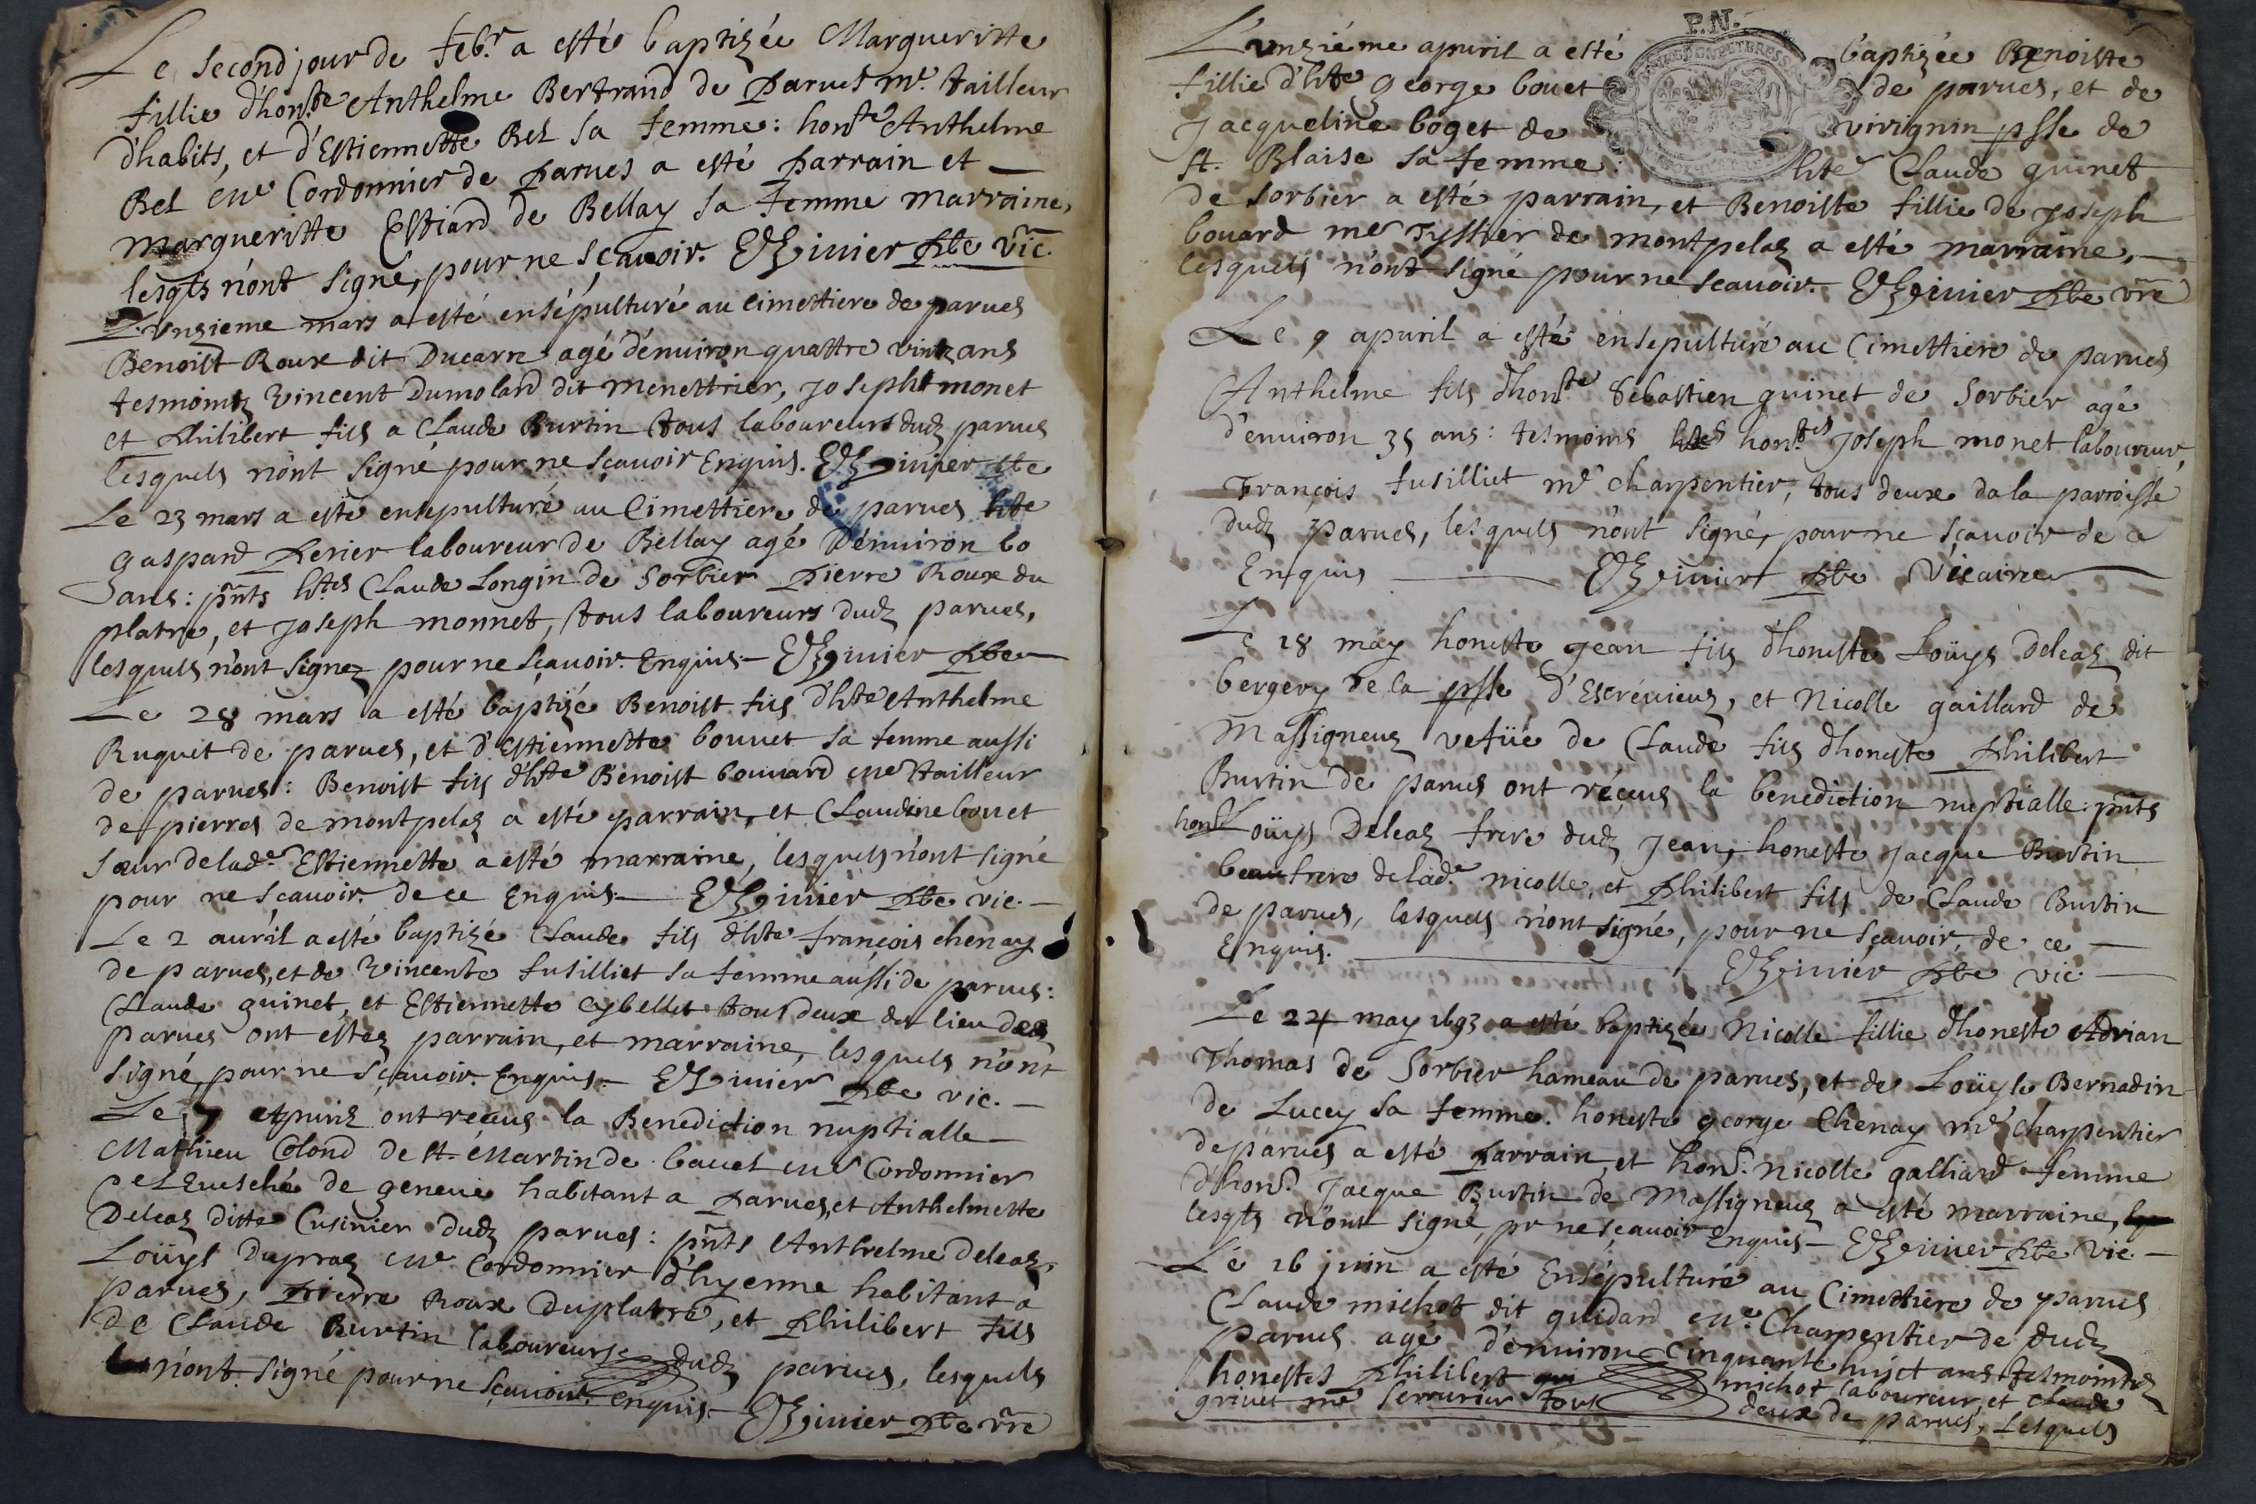 Le second jour de febr. a esté baptizée Margueritte
fillie d'honste Anthelme Bertrand de Parves me. tailleur
d'habits, et d'Estiennette Bel sa femme: honste Anthelme
Bel me Cordonnier de parves a esté parrain et —
Margueritte Estiard de Bellay sa femme marraine,
lesqls n'ont signé, pour ne scavoir. Pbe vic.
L'unzieme mars a esté ensépulturé au cimettiere de parves
Benoist Roux dit Ducarre agé d'environ quattre vintz ans
tesmointz vincent Dumolard dit menettrier, Joseph monet
et Philibert fils a Claude Burtin tous laboureurs dudz parves
lesquels n'ont signé pour ne scavoir Enquis. pbe
Le 23 mars a esté ensepulturé au Cimettiere de parves hte
gaspard Perier laboureur de Bellay agé d'environ 60
ans: pnts htes Claude Longin de Sorbier Pierre Roux du
platre, et Joseph monnet, tous laboureurs dudz parves,
lesquels n'ont signez pour ne scavoir. Enquis — Pbe
Le 28 mars a esté baptizé Benoist fils d'hte Anthelme
Ruquet de parves, et d'Estiennette bouvet sa femme aussi
de parves: Benoist fils d'hte Benoist bouvard me tailleur
de pierres de montpelaz a esté parrain, et Claudine bouet
sœur de lade. Estiennette a esté marraine, lesquels n'ont signé
pour ne scavoir. de ce Enquis — Pbe vic. —
Le 2 avril a esté baptizé Claude fils d'hte françois chenay
de parves, et de Vincente fusilliet sa femme aussi de parves:
Claude guinet, et Estiennette Cybellet tous deux du lieu de
parves ont estez parrain, et marraine, lesquels n'ont
signé, pour ne scavoir. Enquis. — Pbe vic. —
Le 7 apvriz ont receus la Benediction nuptialle —
Mathieu Colond de st. Martin de bavel me Cordonnier
Evesché de geneve habitant a Parves, et Anthelmette
Deleaz ditte Cusinier dudz parves: pnts Anthelme deleaz,
Loüys Dupraz me Cordonnier d'hyenne habitant a
parves, Pierre Roux duplatre, et Philibert fils
de Claude Burtin laboureurs dudz parves, lesquels
n'ont signé pour ne scavoir. enquis — Pbe vre
L'unziéme apvril a esté baptizée Benoiste
fillie d'hte George bouet de parves, et de
Jacqueline boget de vivignin psse de
st. Blaise sa femme: hte Claude guinet
de sorbier a esté parrain, et Benoiste fillie de Joseph
bouard me Tyssier de montpelaz a esté marraine, —
lesquels n'ont signé pour ne scavoir. Pbe vre
P.N.
Le 9 apvril a esté ensepulturé au Cimettiere de parves
Anthelme fils d'honste Sébastien guinet de Sorbier agé
d'environ 35 ans: tesmoins honstes Joseph monet laboureur,
François fusilliet me charpentier, tous deux de la parroisse
dudz parves, lesquels n'ont signé, pour ne scavoir de ce
Enquis — Pbe Vicaire
Le 18 may honeste Jean fils d'honeste Loüys Deleaz dit
bergery de la psse d'Escrévieuz, et Nicolle gaillard de
Massigneuz vefüe de Claude fils d'honeste Philibert
Burtin de parves ont réceus la benediction nuptialle: pnts
honste Loüys Deleaz frere dudz Jean, honeste Jacque Burtin
beau frere de lade. nicolle, et Philibert fils de Claude Burtin
de parves, lesquels n'ont signé, pour ne scavoir, de ce —
Enquis. — Pbe vic —
Le 24 may 1693 a esté baptizée Nicolle fillie d'honeste Adrian
Thomas de Sorbier hameau de parves, et de Loüyse Bernadin
de Lucey sa femme. honeste george Chenay me charpentier
de parves a esté parrain, et hons. nicolle galliard femme
d'hons. Jacque Burtin de Massigneuz a esté marraine,
lesqls n'ont signé, pr ne scavoir enquis — Pbe vic. —
Le 16 juin a esté Ensépulturé au Cimettiere de parves
Claude michot dit guidard me. Charpentier de dudz
parves agé d'environ Cinquante huict ans tesmointz
honestes Philibert michot laboureur, et Claude
grivet me serrurier tous deux de parves, lesquels